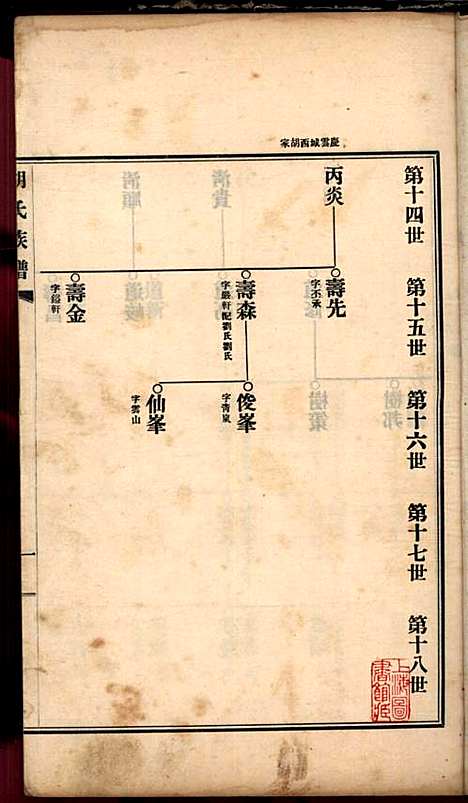 慶雲城西胡家
第十四世
第十五世
第十六世
第十七世
第十八世
丙炎
壽先
壽森
字嚴軒配劉氏劉氏
壽金
字鎔軒
俊峯
字青嵐
仙峯
字雲山
胡氏族譜
上海圖書館藏